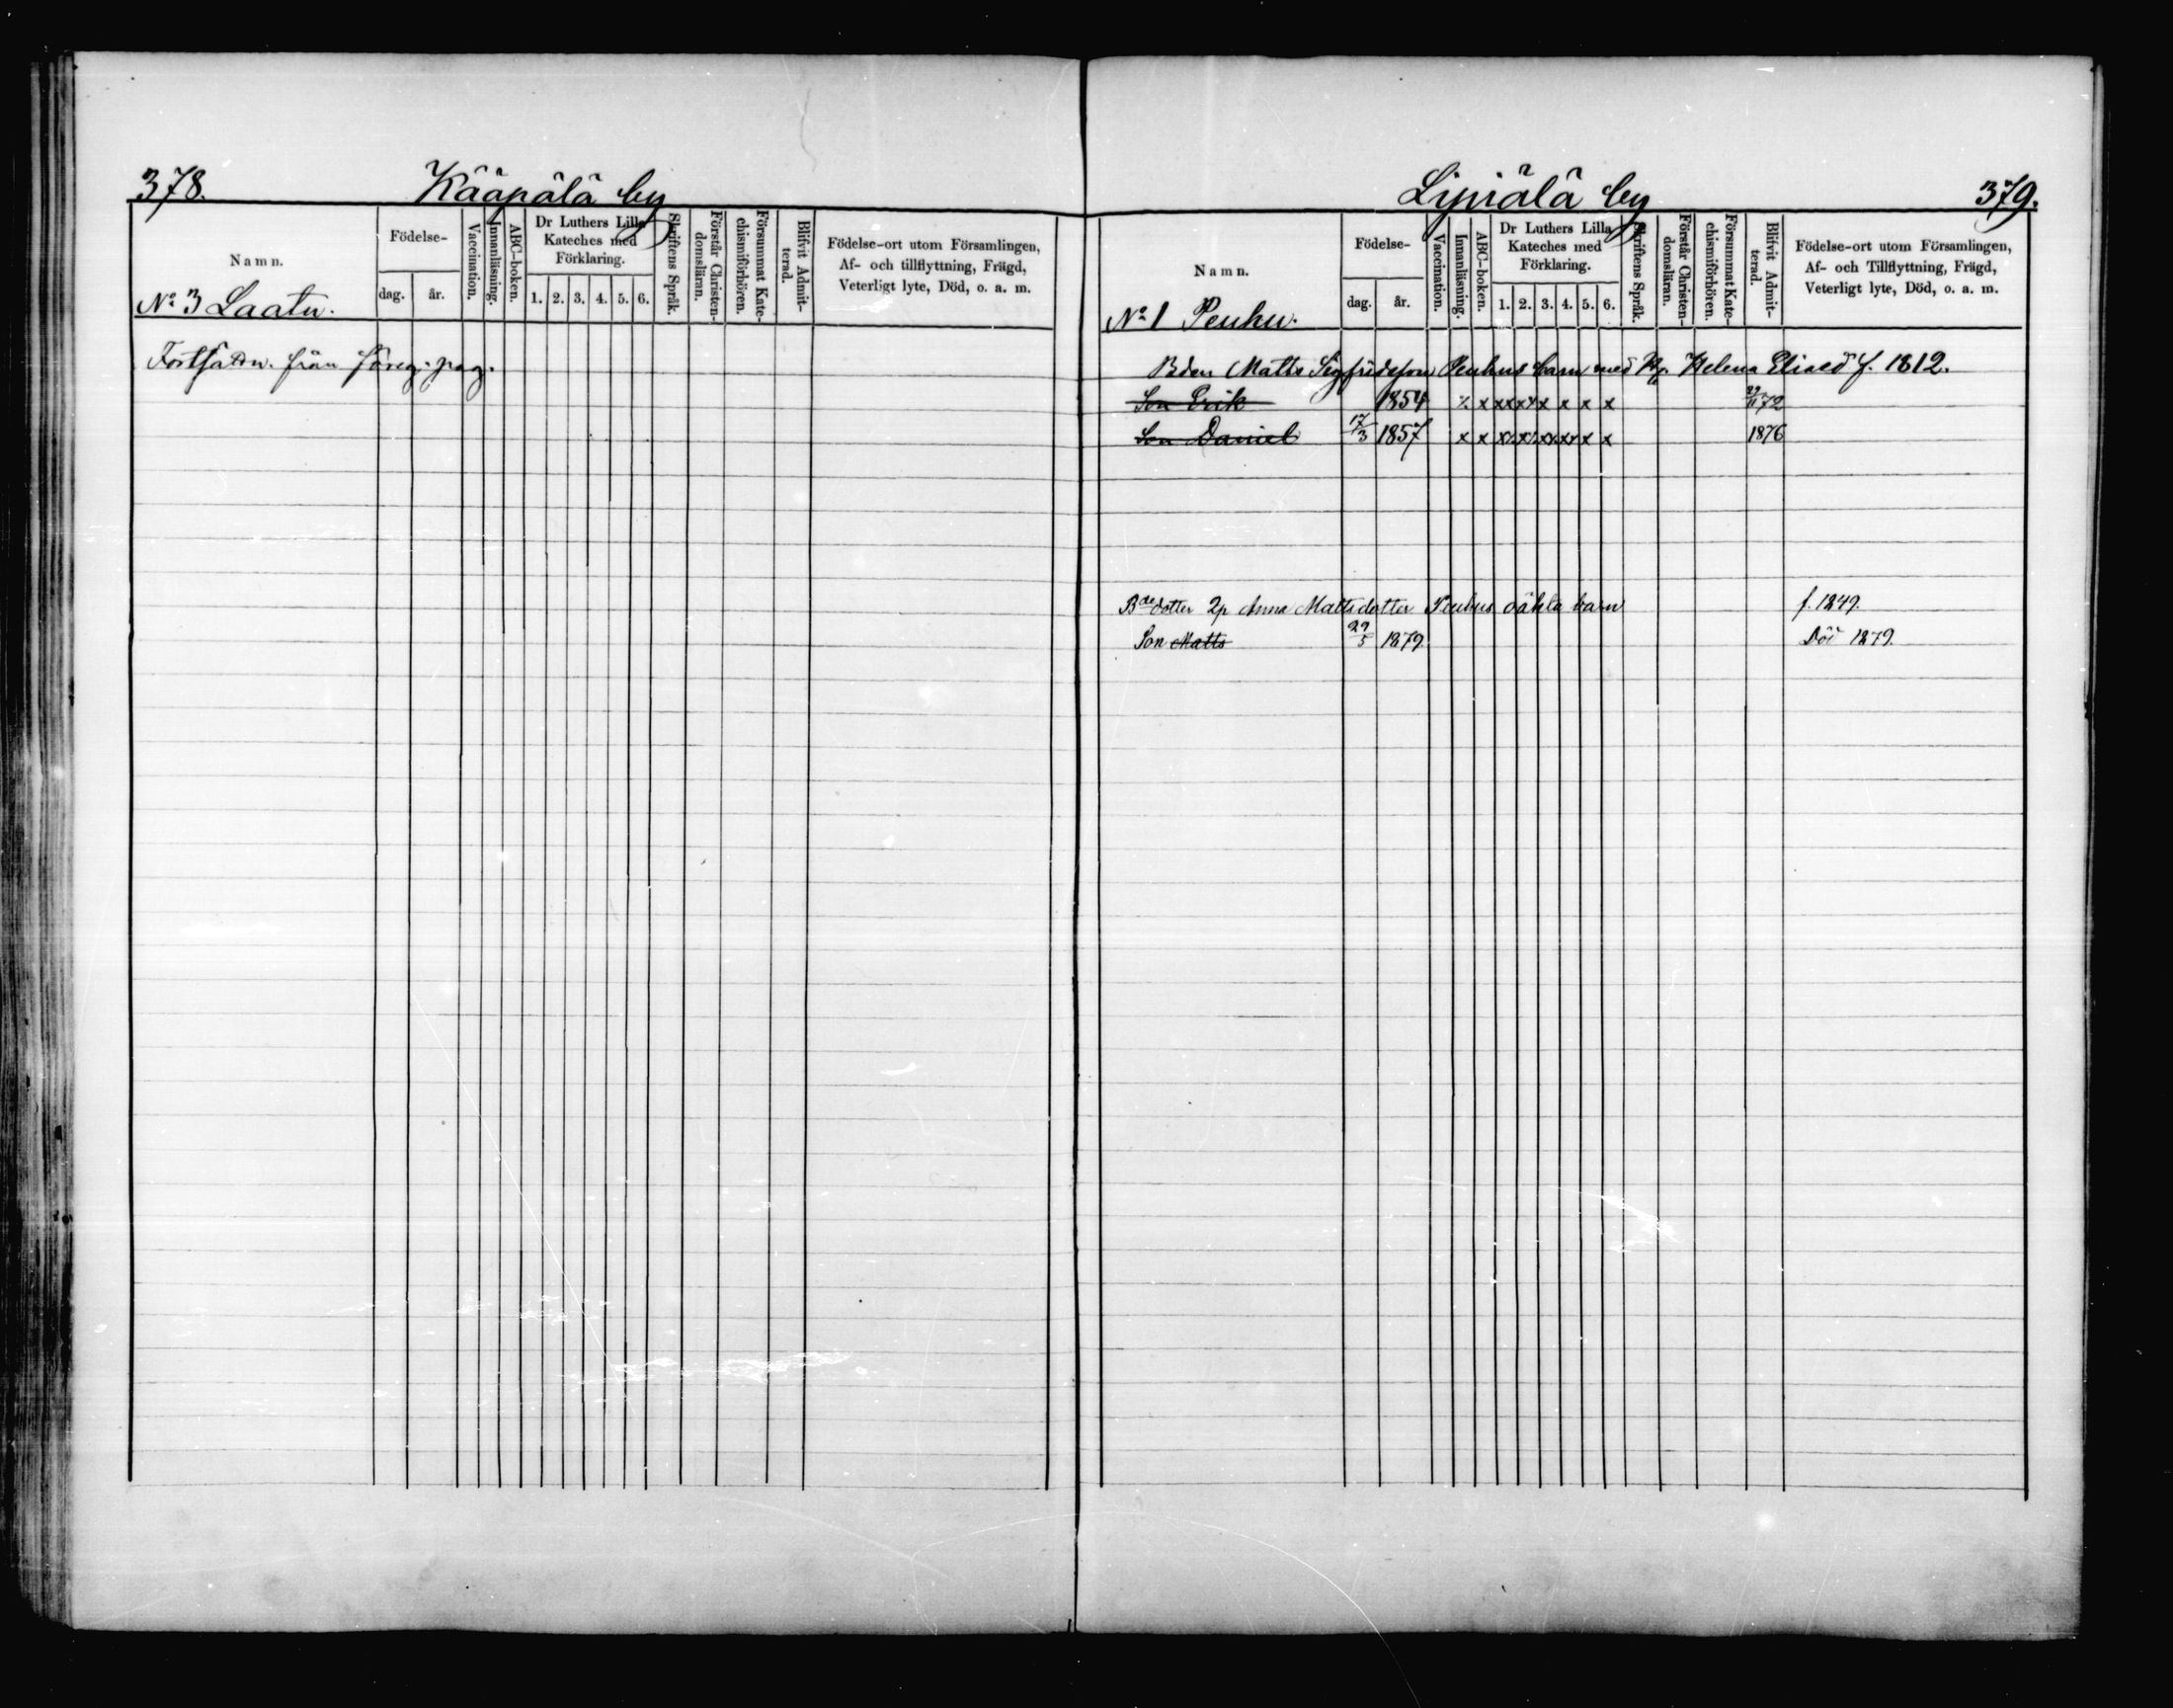 378.
Kääpälä by
Namn.
Födelse-
dag.
år.
Vaccination.
Innanläsning.
ABC-boken.
Dr Luthers Lilla
Kateches med
Förklaring.
1. 2. 3. 4. 5. 6.
Skriftens Språk.
Förstår Christen-
domsläran.
Försummat Kate-
chismiförhören.
Blifvit Admit-
terad.
Födelse-ort utom Församlingen,
Af- och tillflyttning, Frägd,
Veterligt lyte, Död, o. a. m.
No 3 Laatu.
från föreg. pag.
Lipiälä by
379.
Namn.
Födelse-
dag.
år.
Vaccination.
Innanläsning.
ABC-boken.
Dr Luthers Lilla
Kateches med
Förklaring.
1. 2. 3. 4. 5. 6.
Skriftens Språk.
Förstår Christen-
domsläran.
Försummat Kate-
chismiförhören.
Blifvit Admit-
terad.
Födelse-ort utom Församlingen,
Af- och Tillflyttning, Frägd,
Veterligt lyte, Död, o. a. m.
No 1 Peuhu.
Bden Matts Sigfridsson Peuhus barn med Helena Eliaed f. 1812.
Son Erik 1854 x x x x x x 72
Son Daniel 17/3 1857 x x x x x x x x 1876
Bdedotter 2p Anna Mattsdotter Peuhus oäkta barn f. 1849.
Son Matts 29/5 1879. Död 1879.